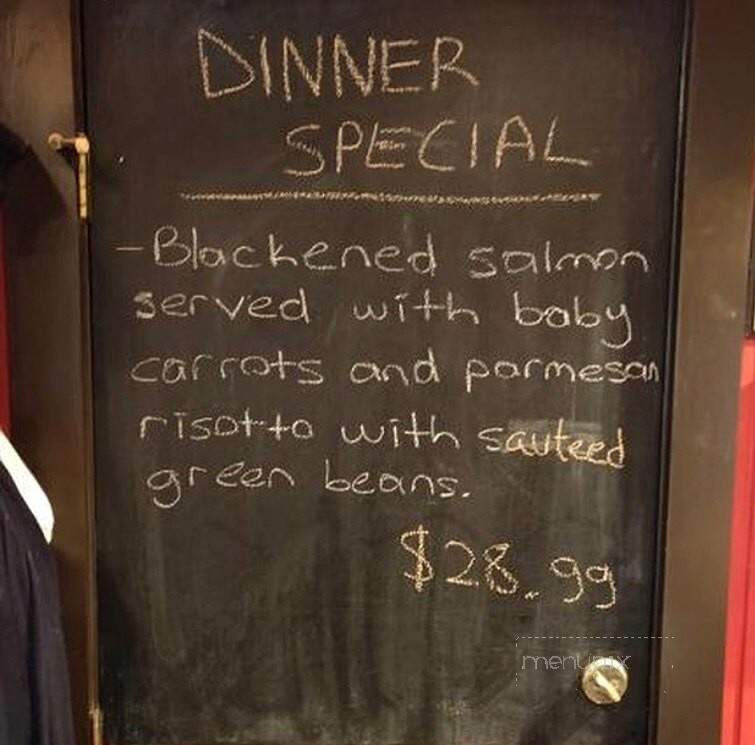 DINNER
SPECIAL
-Blackened salmon
served with baby
carrots and parmesan
risotto with sauteed
green beans.
$28.99
menupix